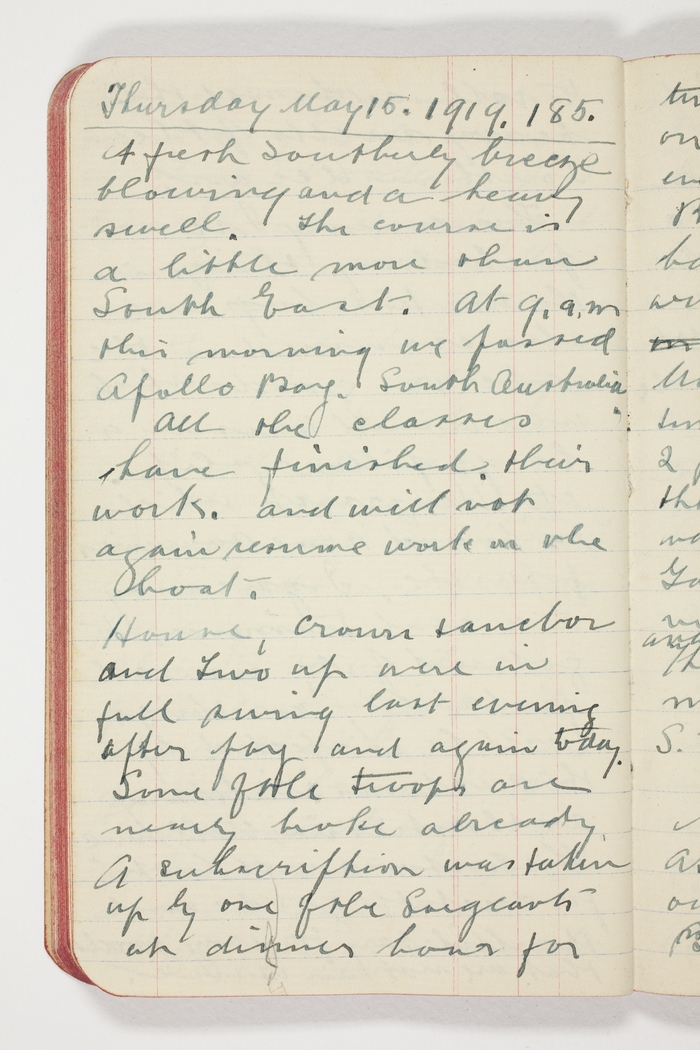 Thursday May 15. 1919. 185.
A fresh Southerly breeze
blowing and a heavy
swell. The course is
a little more than
South East. At 9. a.m
this morning we passed
Apollo Bay. South Australia
All the classes
have finished their
work. and will not
again resume work on the
boat.
House, Crown & anchor
and Two up were in
full swing last evening
after pay and again today.
Some of the troops are
neary broke already.
A subscription was taken
up by one of the Sergeants
at dinner hour for